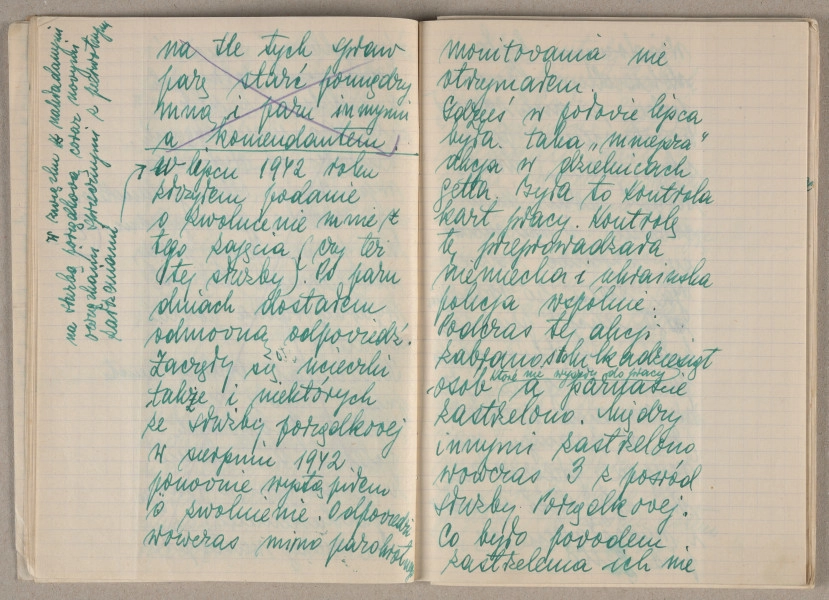 w związku z nakładanymi
na służbę porządkową coraz nowymi
obowiązkami sprzecznymi z pierwotnymi
założeniami
na tle tych spraw
parę starć pomiędzy
mną i paru innymi
a komendantem.
W lipcu 1942 roku
złożyłem podanie
o zwolnienie mnie z
tego zajęcia (czy też
tej służby). Po paru
dniach dostałem
odmowną odpowiedź.
Zaczęły się ucieczki
także i niektórych
ze służby porządkowej
w sierpniu 1942
ponownie wystąpiłem
o zwolnienie. Odpowiedzi
wówczas mimo parokrotnego
monitowania nie
otrzymałem.
Gdzieś w połowie lipca
była taka „mniejsza"
akcja w dzielnicach
getta. Była to kontrola
kart pracy. Kontrolę
tę przeprowadzała
niemiecka i ukraińska
policja wspólnie.
Podczas tej akcji
zabrano stokilkadziesiąt
osób które nie wyszły do pracy a paręnaście
zastrzelono. Między
innymi zastrzelono
wówczas 3 z pośród
służby Porządkowej.
Co było powodem
zastrzelenia ich nie